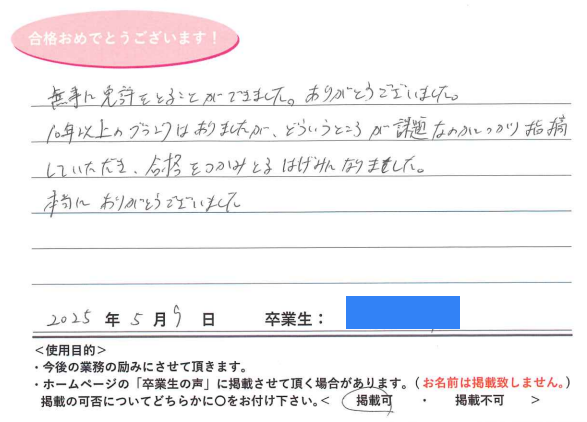 合格おめでとうございます！
無事に免許をとることができました。ありがとうございました。
10年以上のブランクはありましたが、どういうところが課題なのかしっかり指摘
していただき、合格をつかみとるはげみになりました。
本当にありがとうございました
2025 年 5 月 9 日 卒業生：
＜使用目的＞
・今後の業務の励みにさせて頂きます。
・ホームページの「卒業生の声」に掲載させて頂く場合があります。（お名前は掲載致しません。）
掲載の可否についてどちらかに〇をお付け下さい。＜ 掲載可 ・ 掲載不可 ＞